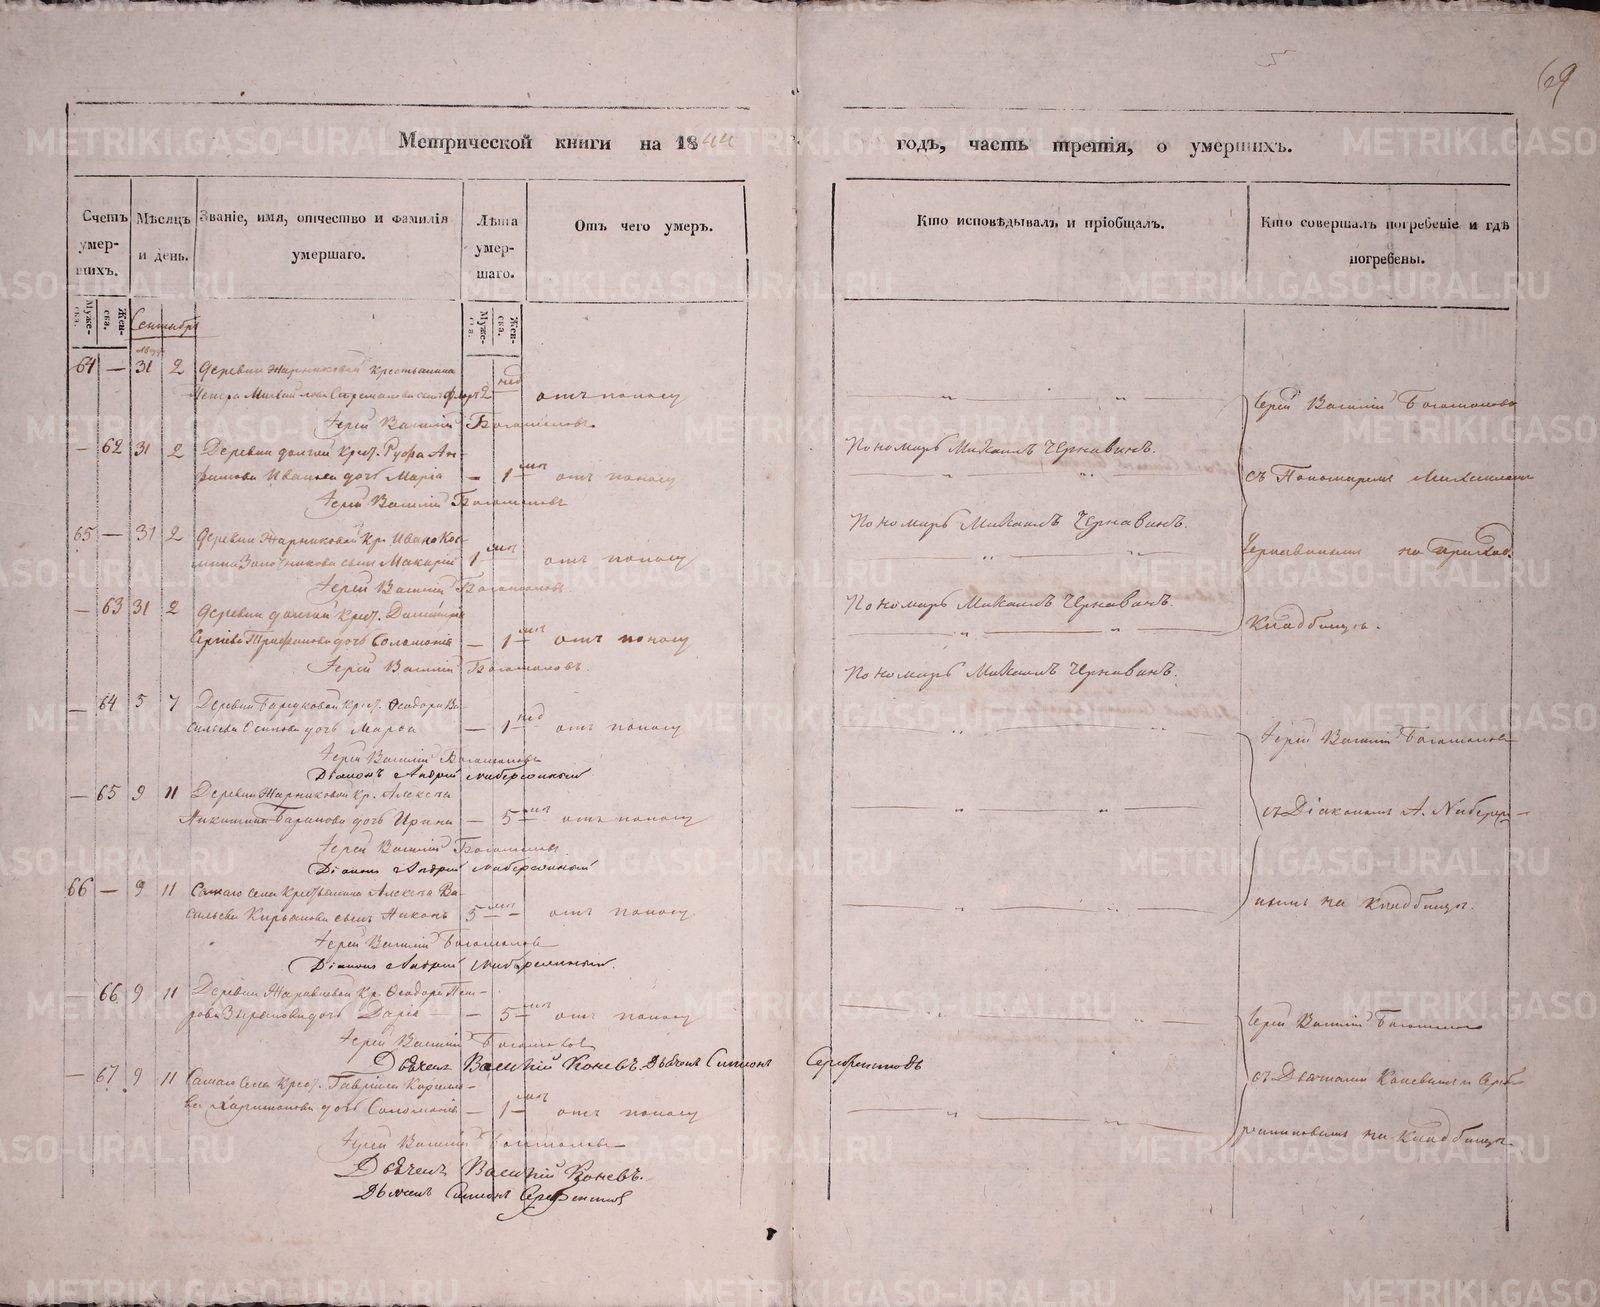 69
Метрической книги на 1844 годъ, часть третія, о умершихъ.
Счетъ умер-шихъ.
Мѣсяцъ и день.
Званіе, имя, отчество и фамилія умершаго.
Лѣта умер-шаго.
Отъ чего умеръ.
Кто исповѣдывалъ и пріобщалъ.
Кто совершалъ погребеніе и гдѣ погребены.
Муже-ска.
Жен-ска.
Муже-ска.
Жен-ска.
Сентябрь
64 — 31 2 Деревни Жарниковой крестьянина
Петра сынъ 2 нед отъ поносу
Іерей Василій Богомоловъ
— 62 31 2 Деревни Долгой крест. Руфа Ан-
Иванова дочь Марія — 1 мѣс отъ поносу
Іерей Василій Богомоловъ
65 — 31 2 Деревни Жарниковой Кр. Ивана Кос-
мина сынъ Макарій 1 мѣс отъ поносу
Іерей Василій Богомоловъ
— 63 31 2 Деревни Долгой Крест.
Сергѣева дочь Соломонія — 1 мѣс отъ поносу
Іерей Василій Богомоловъ.
— 64 5 7 Деревни Крест. Ѳеодора Ва-
сильева Осипова дочь Марѳа — 1 нед отъ поносу
Іерей Василій Богомоловъ
Діаконъ Андрей
— 65 9 11 Деревни Жарниковой Кр. Алексѣя
Никитина Баранова дочь Ирина — 5 мѣс отъ поносу
Іерей Василій Богомоловъ
Діаконъ Андрей
66 — 9 11 Самаго села Крестьянина Алексѣя Ва-
сильева Кирьянова сынъ Никонъ 5 мѣс — отъ поносу
Іерей Василій Богомоловъ
Діаконъ Андрей
— 66 9 11 Деревни Кр. Ѳеодора Пет-
рова дочь Дарія — 5 мѣс отъ поносу
Іерей Василій Богомоловъ
Дьячекъ Василій Коневъ. Дьячекъ Симеонъ Серебренниковъ
— 67 9 11 Самаго Села Крест. Гавріила Карпи-
ва Харитонова дочь Соломонія — 1 мѣс отъ поносу
Іерей Василій Богомоловъ
Дьячекъ Василій Коневъ.
Дьячекъ Симеонъ Серебренниковъ
Пономарь Михаилъ Чернавинъ.
Пономарь Михаилъ Чернавинъ.
Пономарь Михаилъ Чернавинъ.
Пономарь Михаилъ Чернавинъ.
Іерей Василій Богомоловъ
съ Пономаремъ Михаиломъ
Чернавинымъ на Приход.
Кладбищѣ.
Іерей Василій Богомоловъ
съ Діакономъ А.
нымъ на Кладбищѣ.
Іерей Василій Богомоловъ
съ Дьячками Коневымъ и Сереб-
ренниковымъ на Кладбищѣ.
METRIKI.GASO-URAL.RU